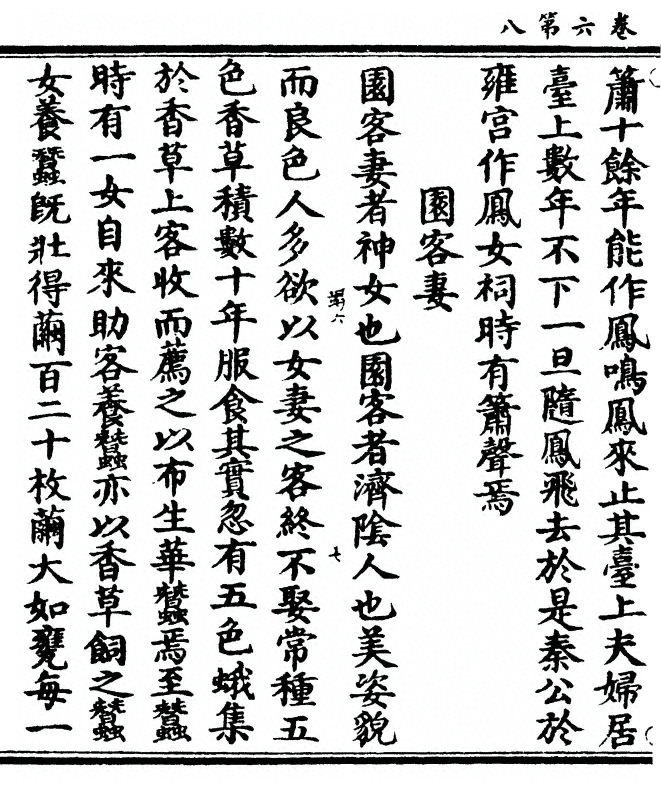 卷六第八
簫十餘年能作鳳鳴鳳來止其臺上夫婦居
臺上數年不下一旦隨鳳飛去於是秦公於
雍宮作鳳女祠時有簫聲焉
園客妻
園客妻者神女也園客者濟陰人也美姿貌
而良色人多欲以女妻之客終不娶常種五
色香草積數十年服食其實忽有五色蛾集
於香草上客收而薦之以布生華蠶焉至蠶
時有一女自來助客養蠶亦以香草飼之蠶
女養蠶旣壯得繭百二十枚繭大如甕每一